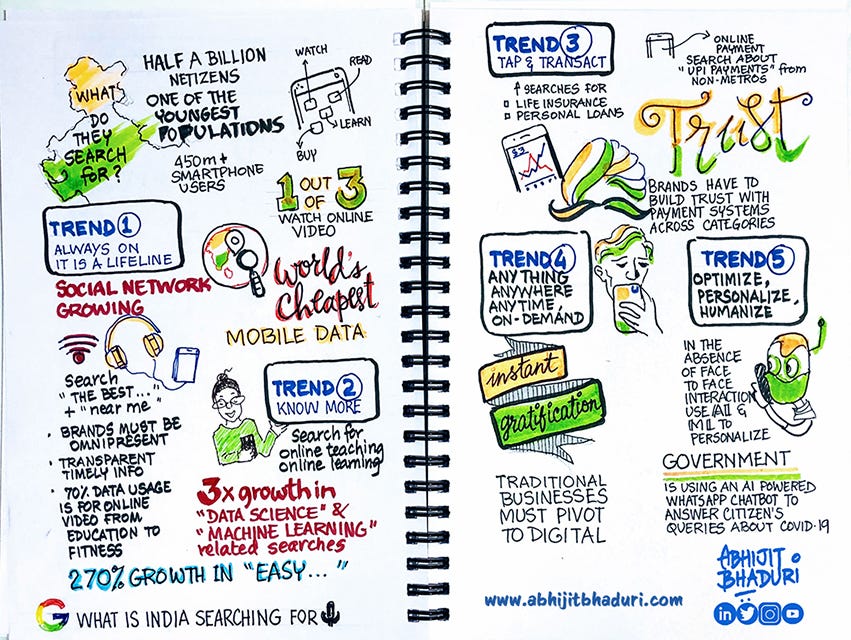 WHAT
DO
THEY
SEARCH
FOR?
HALF A BILLION
NETIZENS
ONE OF THE
YOUNGEST
POPULATIONS
450m+
SMARTPHONE
USERS
WATCH
READ
LEARN
BUY
1 OUT
OF 3
WATCH ONLINE
VIDEO
TREND 1
ALWAYS ON
IT IS A LIFELINE
SOCIAL NETWORK
GROWING
World's
Cheapest
MOBILE DATA
Search
"THE BEST..."
+ "near me"
• BRANDS MUST BE
OMNIPRESENT
• TRANSPARENT
TIMELY INFO
• 70% DATA USAGE
IS FOR ONLINE
VIDEO FROM
EDUCATION TO
FITNESS
TREND 2
KNOW MORE
Search for
online teaching
online learning
3x growth in
"DATA SCIENCE" &
"MACHINE LEARNING"
related searches
270% GROWTH IN "EASY..."
G WHAT IS INDIA SEARCHING FOR
TREND 3
TAP & TRANSACT
↑ SEARCHES FOR
LIFE INSURANCE
PERSONAL LOANS
ONLINE
PAYMENT
SEARCH ABOUT
"UPI PAYMENTS" from
NON-METROS
Trust
BRANDS HAVE TO
BUILD TRUST WITH
PAYMENT SYSTEMS
ACROSS CATEGORIES
TREND 4
ANYTHING
ANYWHERE
ANYTIME,
ON-DEMAND
instant
gratification
TRADITIONAL
BUSINESSES
MUST PIVOT
TO DIGITAL
TREND 5
OPTIMIZE,
PERSONALIZE,
HUMANIZE
IN THE
ABSENCE
OF FACE
TO FACE
INTERACTION
USE AI &
ML TO
PERSONALIZE
GOVERNMENT
IS USING AN AI POWERED
WHATSAPP CHATBOT TO
ANSWER CITIZEN'S
QUERIES ABOUT COVID-19
ABHIJIT
BHADURI
www.abhijitbhaduri.com
in